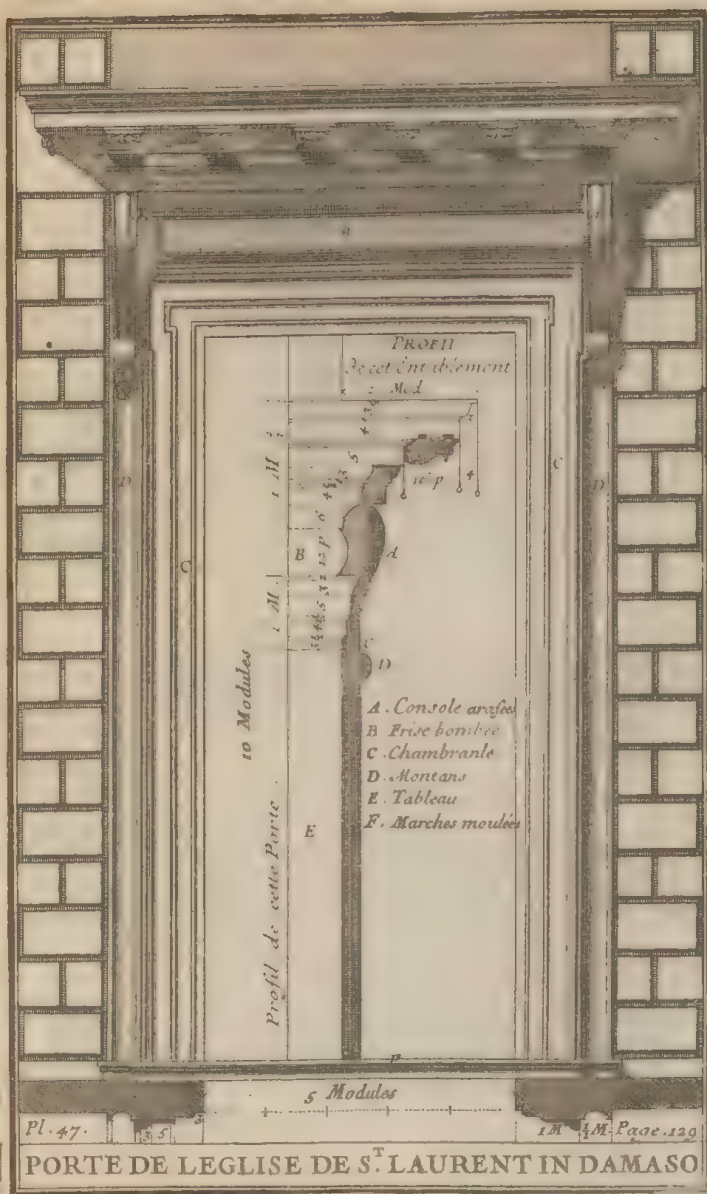 A
PROFIL
de cet Entablement
2 Mod
1 M
10 p
4
B
12 p
A
C
D
C
C
D
D
1 M
10 Modules
Profil de cette Porte
E
A . Console arasée
B Frise bombée
C . Chambranle
D . Montans
E . Tableau
F . Marches moulées
F
5 Modules
Pl . 47 .
3 5
1 M
½ M
Page . 129
PORTE DE LEGLISE DE S.T LAURENT IN DAMASO